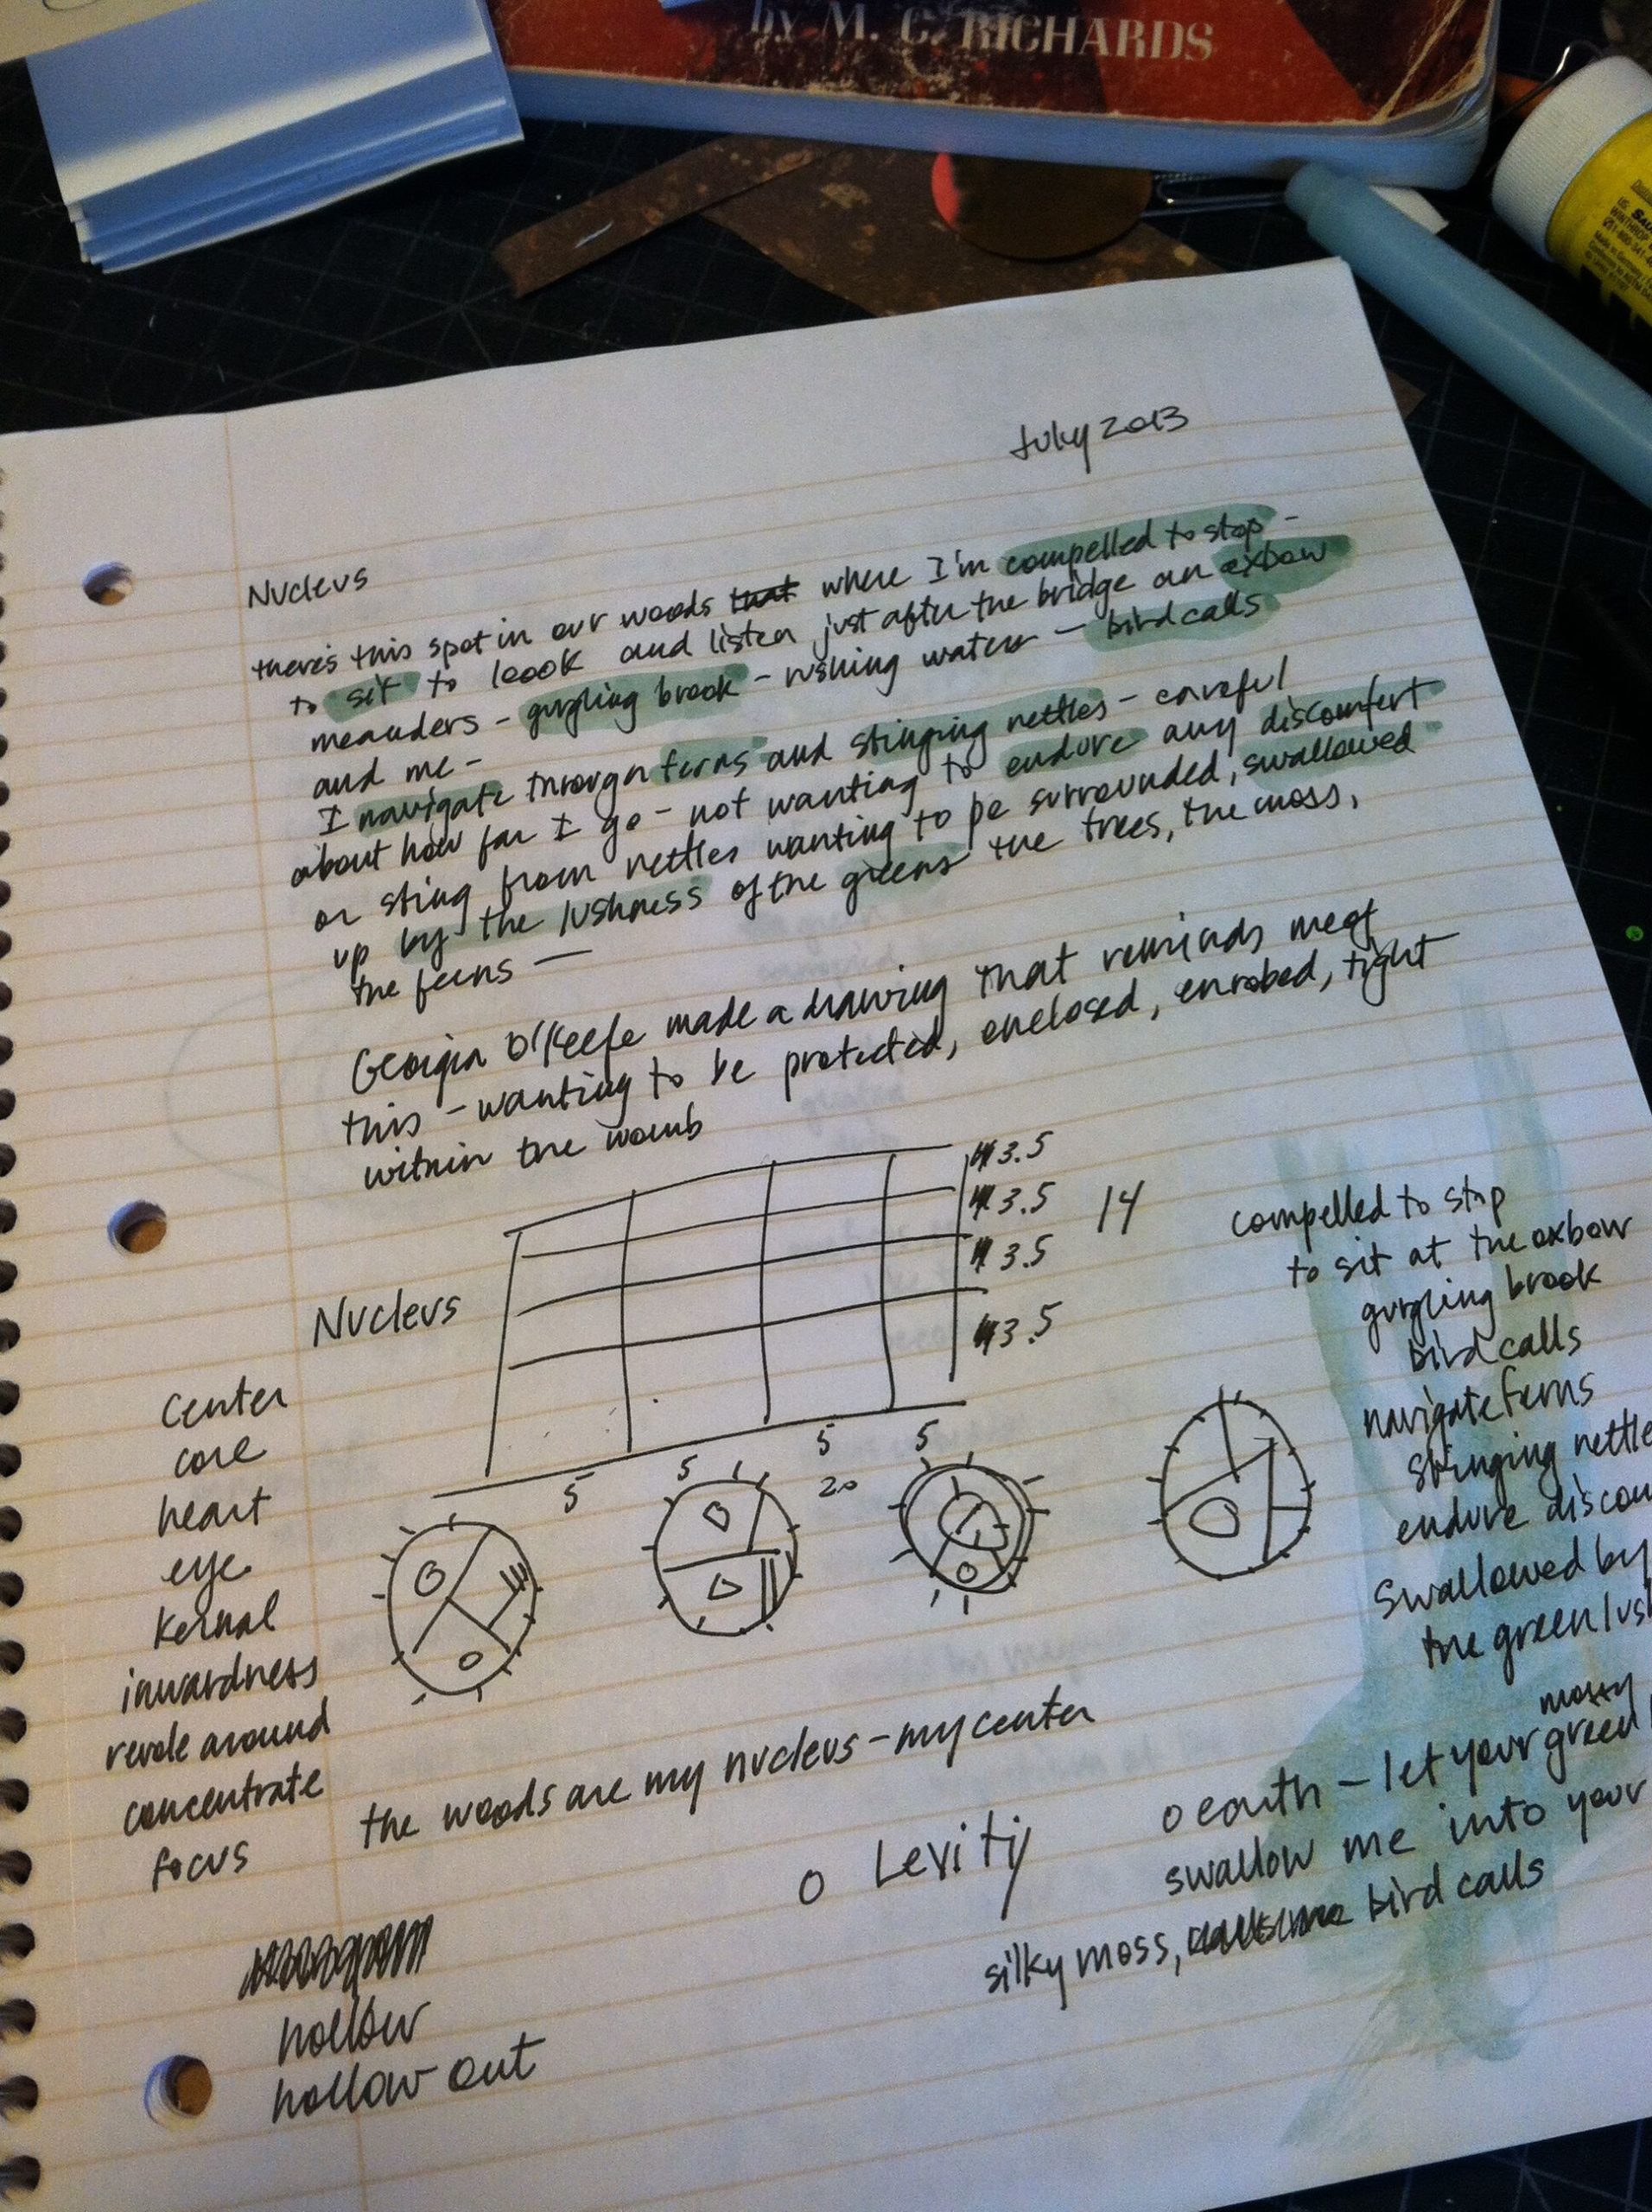 by M. C. RICHARDS
July 2013
Nucleus
there's this spot in our woods that where I'm compelled to stop -
to sit to loook and listen just after the bridge an oxbow
meanders - gurgling brook - rushing water - bird calls
and me -
I navigate through ferns and stinging nettles - careful
about how far I go - not wanting to endure any discomfort
or sting from nettles wanting to be surrounded, swallowed
up by the lushness of the greens the trees, the moss,
the ferns —
Georgia O'Keefe made a drawing that reminds me of
this - wanting to be protected, enclosed, enrobed, tight
within the womb
3.5
3.5
14
3.5
3.5
Nucleus
5
5
5
5
20
center
core
heart
eye
kernal
inwardness
revole around
concentrate
focus
hollow
hollow out
compelled to stop
to sit at the oxbow
gurgling brook
bird calls
navigate ferns
stinging nettle
endure discom
swallowed by
the green lus
the woods are my nucleus - my center
o Levity
mossy
o earth - let your green
swallow me into your
silky moss, bird calls